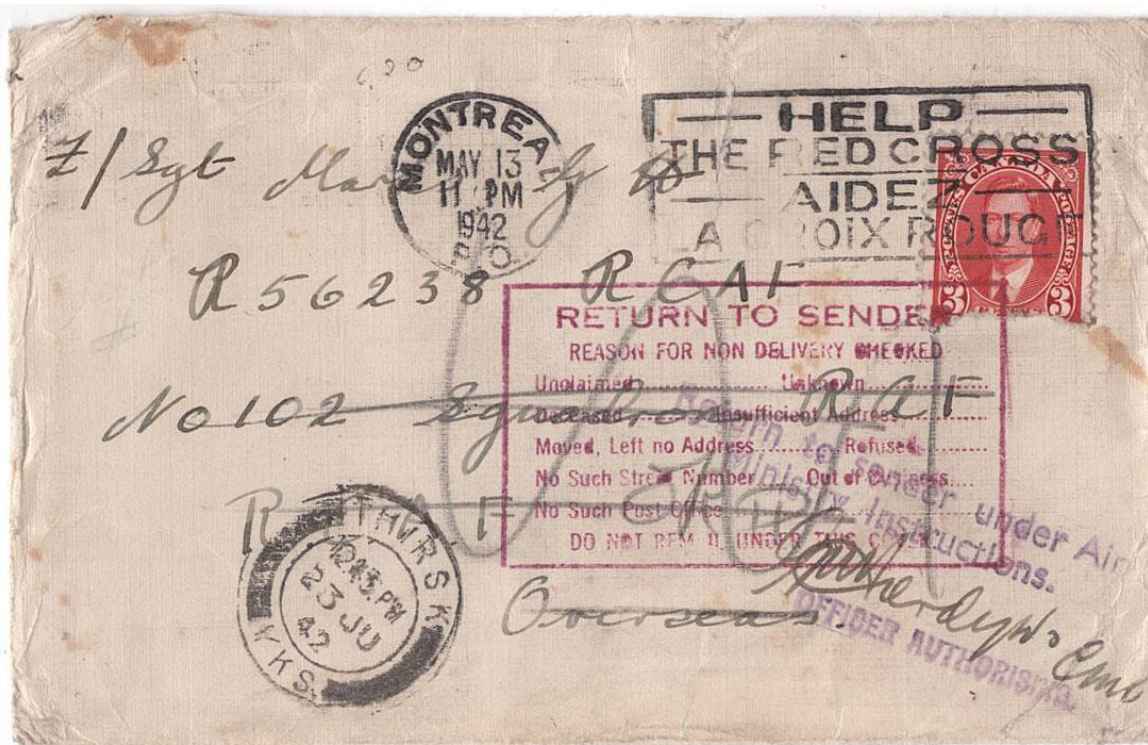 MONTREAL
MAY 13
11 PM
1942
P.O.
HELP
THE RED CROSS
AIDEZ
LA CROIX ROUGE
POSTES CANADA POSTAGE
3 CENTS 3
F/Sgt
R56238 RCAF
No 102 Squadron RAF
RAF
Overseas.
RETURN TO SENDER
REASON FOR NON DELIVERY CHECKED
Unclaimed Unknown
Deceased Insufficient Address
Moved, Left no Address Refused
No Such Street Number Out of Business
No Such Post Office
DO NOT REMAIL UNDER THIS COVER
Return to sender under Air
Ministry Instructions.
OFFICER AUTHORISING.
THIRSK
1243 PM
23 JU
42
YKS.